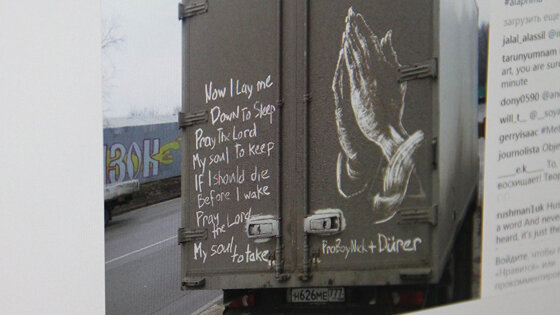 Now I Lay me
Down To Sleep
Pray The Lord
My soul to keep
If I should die
Before I wake
Pray
the Lord
My soul
to take
ProBoyNick + Dürer
н626ме
777
ЗОН
загрузить еще
jalal_alassil
tarunyumnam
art, you are sure
minute
dony0590 @an
will_t_ @_soya
gerryisaac #Me
journalista Obje
____e.k___ To,
восхищает! Твор
rushman1uk Hus
a word And neve
heard, it's just the
Войдите, чтобы
«Нравится» или
прокомментиро